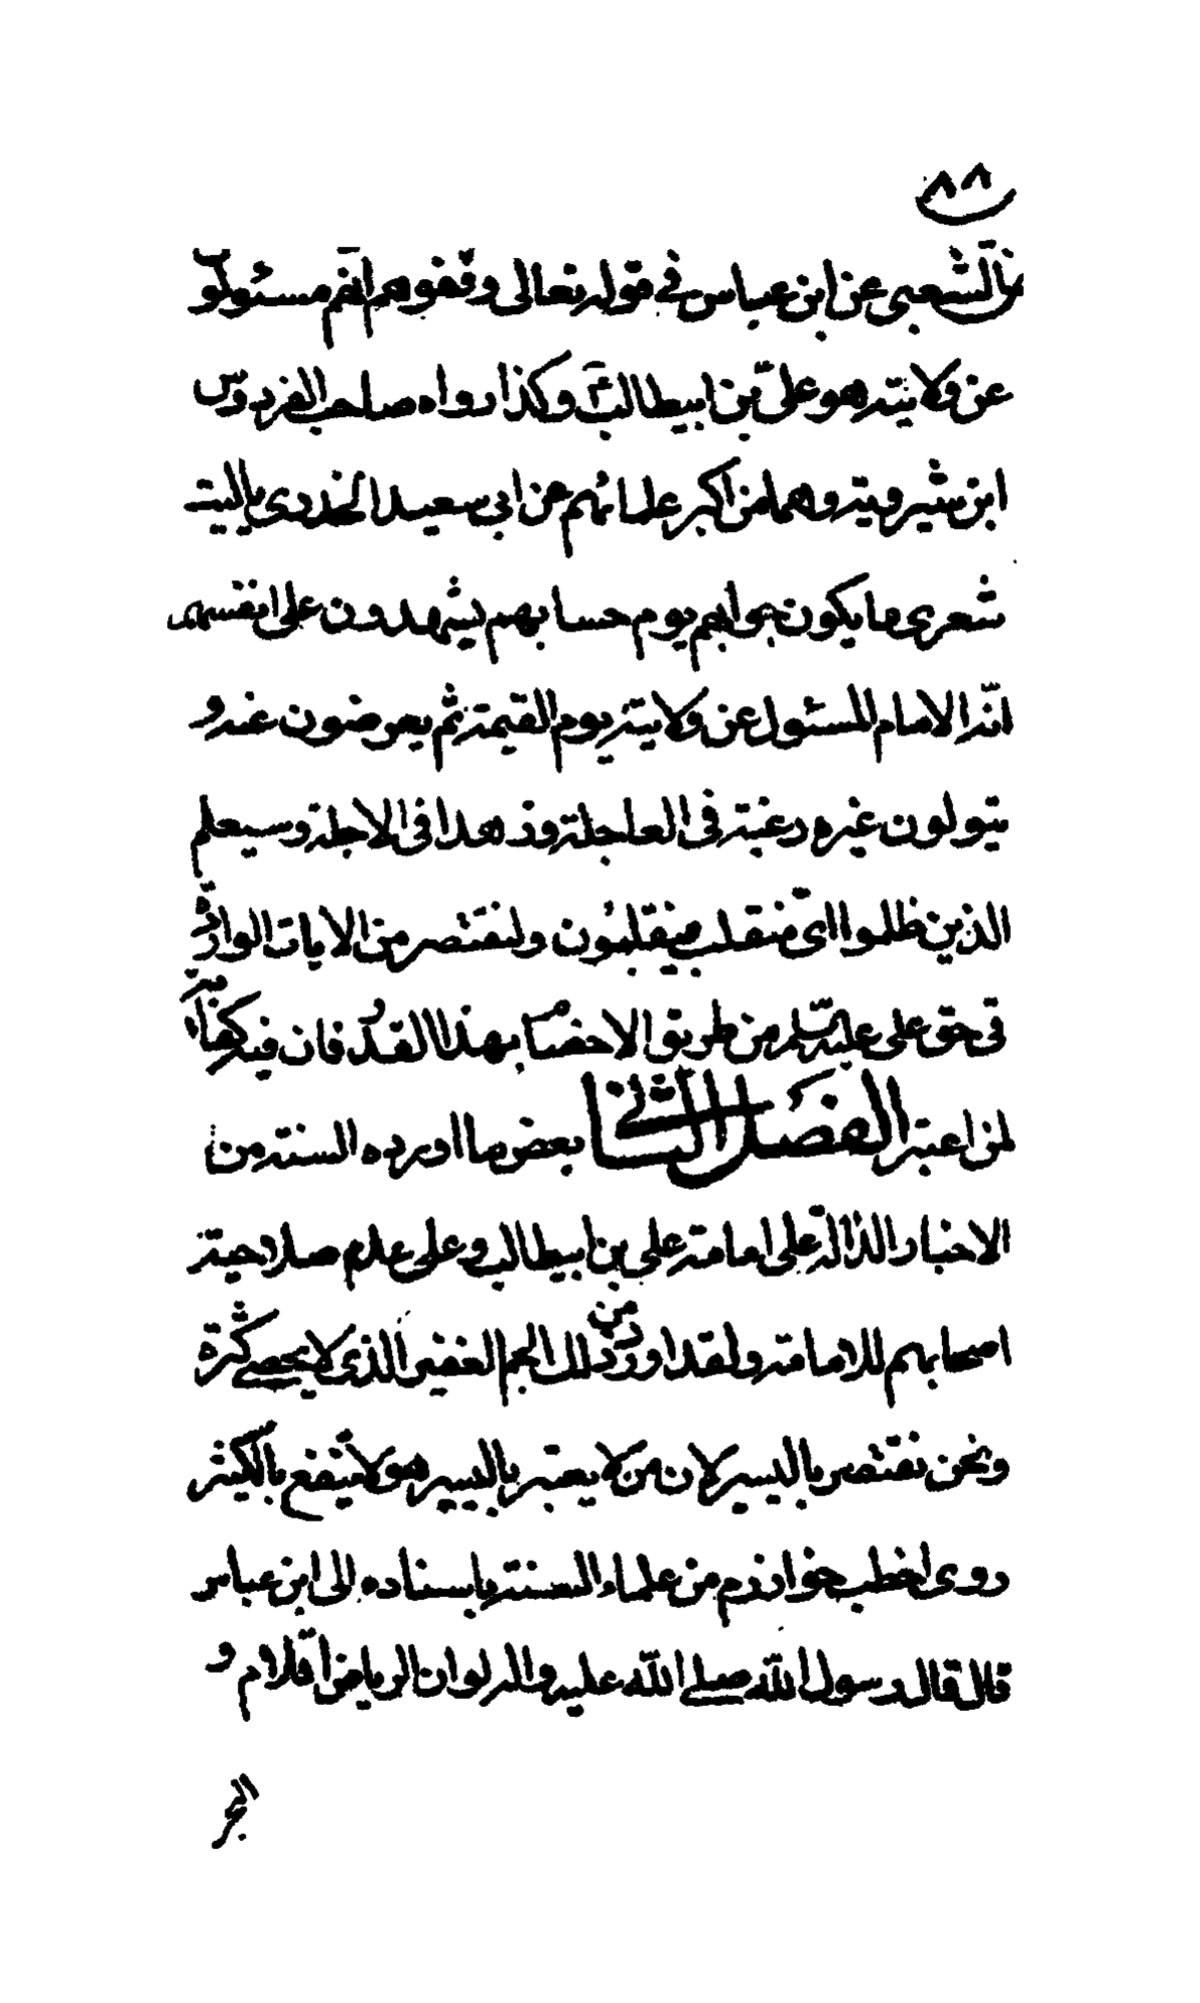 ٨٨
من الشعبي عن ابن عباس في قوله تعالى وقفوهم انهم مسئولون
عن ولايته هو علىّ بن ابيطالبؑ وكذا رواه صاحب الفردوس
ابن شيرويه وهما من اكبر علمائهم عن ابي سعيد الخدرى ياليت
شعرى ما يكون جوابهم يوم حسابهم يشهدون على انفسهم
انّه الامام المسئول عن ولايته يوم القيمة ثم يعرضون عنه و
يتولون غيره رغبة فى العاجلة وزهدا فى الاجلة وسيعلم
الذين ظلموا اىّ منقلب ينقلبون ولنقتصر من الايات الواردة
فى حق على عليه السلم من طريق الاختصار بهذا القدر فان فيه كفاية
لمن اعتبر الفصل الثانى بعض ما اورده السنة من
الاخبار الدالّة على امامة على بن ابيطالب وعلى عدم صلاحية
اصحابهم للامامة ولقد اورد من ذلك الجم الغفير الذى لا يحصى كثرة
ونحن نقتصر باليسير لان من لا يعتبر باليسير هو لا ينتفع بالكثير
روى اخطب خوارزم من علماء السنة باسناده الى ابن عباس
قال قال رسول اللّه صلى اللّه عليه واله لو ان الرياض اقلام و
البحر